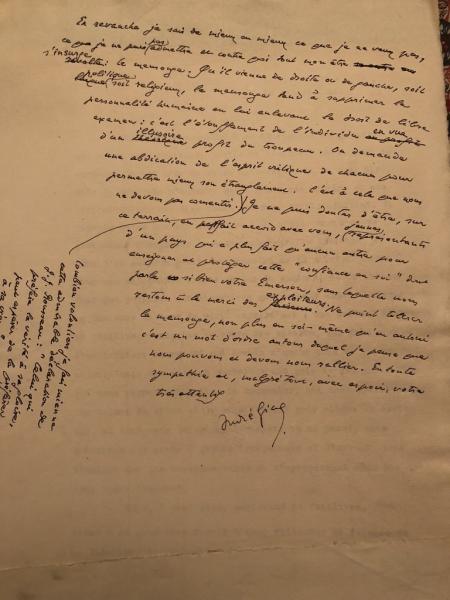 En revanche je sais de mieux en mieux ce que je ne veux pas,
ce que je ne puis pas admettre et contre quoi tout mon être
s'insurge : le mensonge. Qu'il vienne de droite ou de gauche, soit
politique soit religieux, le mensonge tend à supprimer la
personnalité humaine en lui enlevant le droit de libre
examen ; c'est l'étouffement de l'individu en vue
d'un illusoire profit du troupeau. On demande
une abdication de l'esprit critique de chacun pour
permettre mieux son étranglement. C'est à cela que nous
ne devons pas consentir. Je ne puis douter d'être, sur
ce terrain, en parfait accord avec vous, jeunes représentants
d'un pays qui a plus fait qu'aucun autre pour
enseigner et protéger cette "confiance en soi" dont
parle si bien votre Emerson, sans laquelle nous
restons à la merci des exploiteurs. Ne point tolérer
le mensonge, non plus en soi-même qu'en autrui
c'est un mot d'ordre autour duquel je pense que
nous pouvons et devons nous rallier. En toute
sympathie et, malgré tout, avec espoir, votre
très attentif
André Gide
Combien volontiers je fais mienne
cette admirable déclaration de
J.J. Rousseau : "Celui qui
préfère la vérité à sa gloire,
peut espérer de la préférer
à sa vie."